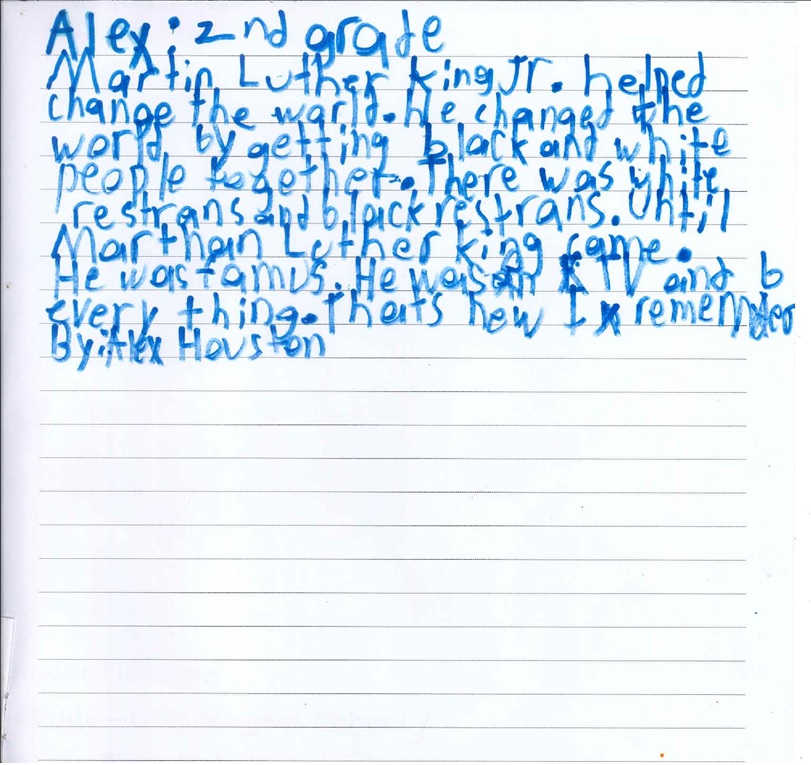 Alex: 2nd grade
Martin Luther king Jr. helped
change the warld. he changed the
world by getting black and white
people together. There was white
restrans and black restrans. Until
Marthan Luther king came.
He was famus. He was on TV and
every thing. thats how I remember
By: Alex Houston